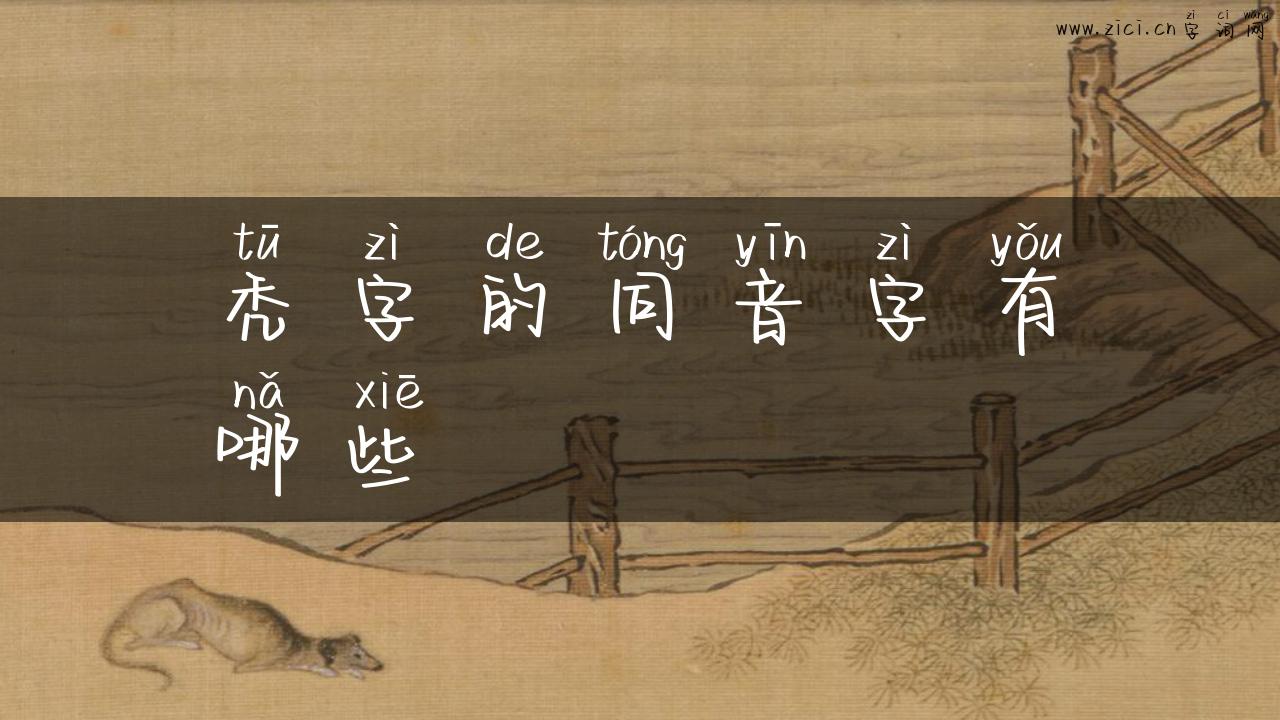 zì cí wǎng
www.zici.cn 字词网
tū zì de tóng yīn zì yǒu
秃字的同音字有
nǎ xiē
哪些